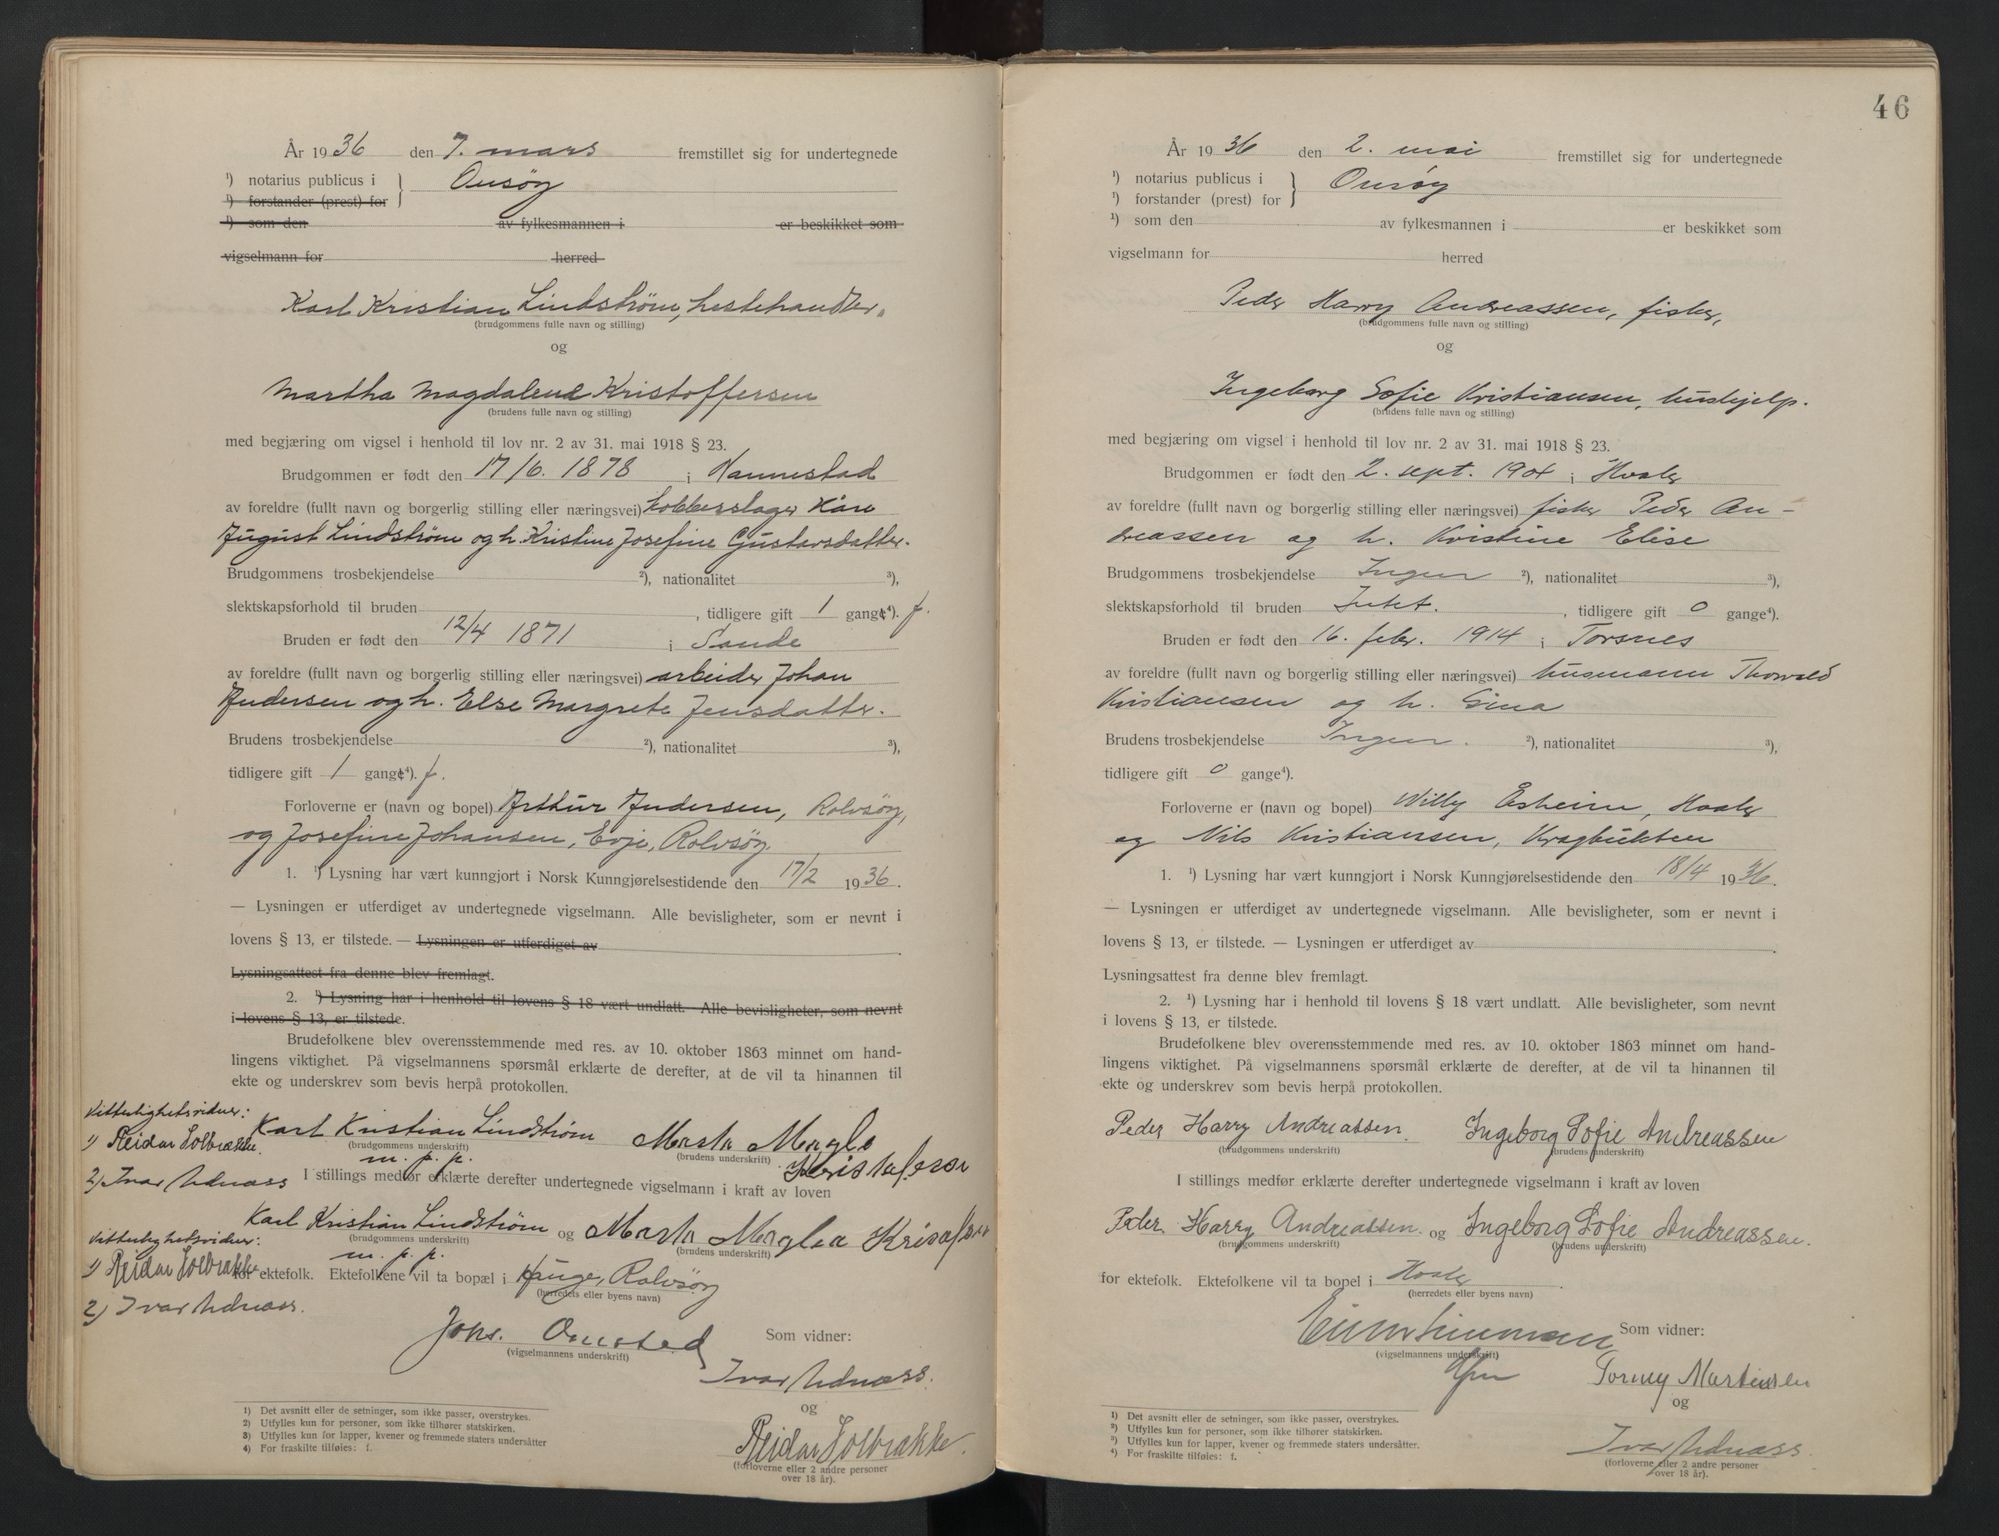 År 1936 den 7. mars fremstillet sig for undertegnede
¹) notarius publicus i } Onsøy
¹) forstander (prest) for
¹) som den av fylkesmannen i er beskikket som
vigselmann for herred
Karl Kristian Lindstrøm, hestehandler.
(brudgommens fulle navn og stilling)
og
Martha Magdalene Kristoffersen
(brudens fulle navn og stilling)
med begjæring om vigsel i henhold til lov nr. 2 av 31. mai 1918 § 23.
Brudgommen er født den 17/6. 1878 i Hannestad
av foreldre (fullt navn og borgerlig stilling eller næringsvei) kobberslager
August Lindstrøm og h. Kristine Josefine Gustavsdatter.
Brudgommens trosbekjendelse ²), nationalitet ³),
slektskapsforhold til bruden , tidligere gift 1 gang⁴). f.
Bruden er født den 12/4 1871 i Sande
av foreldre (fullt navn og borgerlig stilling eller næringsvei) arbeider Johan
Andersen og h. Else Margrete Jensdatter.
Brudens trosbekjendelse ²), nationalitet ³),
tidligere gift 1 gang⁴). f.
Forloverne er (navn og bopel) Arthur Andersen, Rolvsøy,
og Josefine Johansen, Evje, Rolvsøy
1. ¹) Lysning har vært kunngjort i Norsk Kunngjørelsestidende den 17/2 1936.
— Lysningen er utferdiget av undertegnede vigselmann. Alle bevisligheter, som er nevnt i
lovens § 13, er tilstede. — Lysningen er utferdiget av
Lysningsattest fra denne blev fremlagt.
2. ¹) Lysning har i henhold til lovens § 18 vært undlatt. Alle bevisligheter, som nevnt
i lovens § 13, er tilstede.
Brudefolkene blev overensstemmende med res. av 10. oktober 1863 minnet om hand-
lingens viktighet. På vigselmannens spørsmål erklærte de derefter, at de vil ta hinannen til
ekte og underskrev som bevis herpå protokollen.
Vitterlighetsvidner:
1) Reidar Solbrække. Karl Kristian Lindstrøm Marta Magle
(brudgommens underskrift) (brudens underskrift)
m. p. p. Kristafersen
2) Ivar Udnæss I stillings medfør erklærte derefter undertegnede vigselmann i kraft av loven
Karl Kristian Lindstrøm og Marta Maglea
Vitterlighetsvidner: (brudgommens underskrift) (brudens underskrift)
m. p. p.
1) Reidar Solbrække for ektefolk. Ektefolkene vil ta bopæl i Hauge, Rolvsøy
(herredets eller byens navn)
2) Ivar Udnæss.
Johs. Omsted Som vidner:
(vigselmannens underskrift)
Ivar Udnæss.
og
Reidar Solbrække.
(forloverne eller 2 andre personer
over 18 år).
1) Det avsnitt eller de setninger, som ikke passer, overstrykes.
2) Utfylles kun for personer, som ikke tilhører statskirken.
3) Utfylles kun for lapper, kvener og fremmede staters undersåtter
4) For fraskilte tilføies: f.
46
År 1936 den 2. mai fremstillet sig for undertegnede
¹) notarius publicus i } Onsøy
¹) forstander (prest) for
¹) som den av fylkesmannen i er beskikket som
vigselmann for herred
Peder Harry Andreassen, fisker,
(brudgommens fulle navn og stilling)
og
Ingeborg Sofie Kristiansen, hushjelp.
(brudens fulle navn og stilling)
med begjæring om vigsel i henhold til lov nr. 2 av 31. mai 1918 § 23.
Brudgommen er født den 2. sept. 1904 i Hvaler
av foreldre (fullt navn og borgerlig stilling eller næringsvei) fisker Peder An-
dreassen og h. Kristine Elise
Brudgommens trosbekjendelse Ingen ²), nationalitet ³),
slektskapsforhold til bruden Intet. , tidligere gift 0 gange⁴).
Bruden er født den 16. febr. 1914 i Torsnes
av foreldre (fullt navn og borgerlig stilling eller næringsvei) husmann Thorvald
Kristiansen og h. Gina
Brudens trosbekjendelse Ingen. ²), nationalitet ³),
tidligere gift 0 gange⁴).
Forloverne er (navn og bopel) Willy Esheim, Hvaler
og Nils Kristiansen, Kragbukten
1. ¹) Lysning har vært kunngjort i Norsk Kunngjørelsestidende den 18/4 1936.
— Lysningen er utferdiget av undertegnede vigselmann. Alle bevisligheter, som er nevnt i
lovens § 13, er tilstede. — Lysningen er utferdiget av
Lysningsattest fra denne blev fremlagt.
2. ¹) Lysning har i henhold til lovens § 18 vært undlatt. Alle bevisligheter, som nevnt
i lovens § 13, er tilstede.
Brudefolkene blev overensstemmende med res. av 10. oktober 1863 minnet om hand-
lingens viktighet. På vigselmannens spørsmål erklærte de derefter, at de vil ta hinannen til
ekte og underskrev som bevis herpå protokollen.
Peder Harry Andreassen. Ingeborg Sofie Andreassen
(brudgommens underskrift) (brudens underskrift)
I stillings medfør erklærte derefter undertegnede vigselmann i kraft av loven
Peder Harry Andreassen og Ingeborg Sofie Andreassen.
(brudgommens underskrift) (brudens underskrift)
for ektefolk. Ektefolkene vil ta bopel i Hvaler
(herredets eller byens navn)
Som vidner:
(vigselmannens underskrift)
Torney Martinsen
og
Ivar Udnæss.
(forloverne eller 2 andre personer
over 18 år).
¹) Det avsnitt eller de setninger, som ikke passer, overstrykes.
²) Utfylles kun for personer, som ikke tilhører statskirken.
³) Utfylles kun for lapper, kvener og fremmede staters undersåtter.
⁴) For fraskilte tilføies: f.